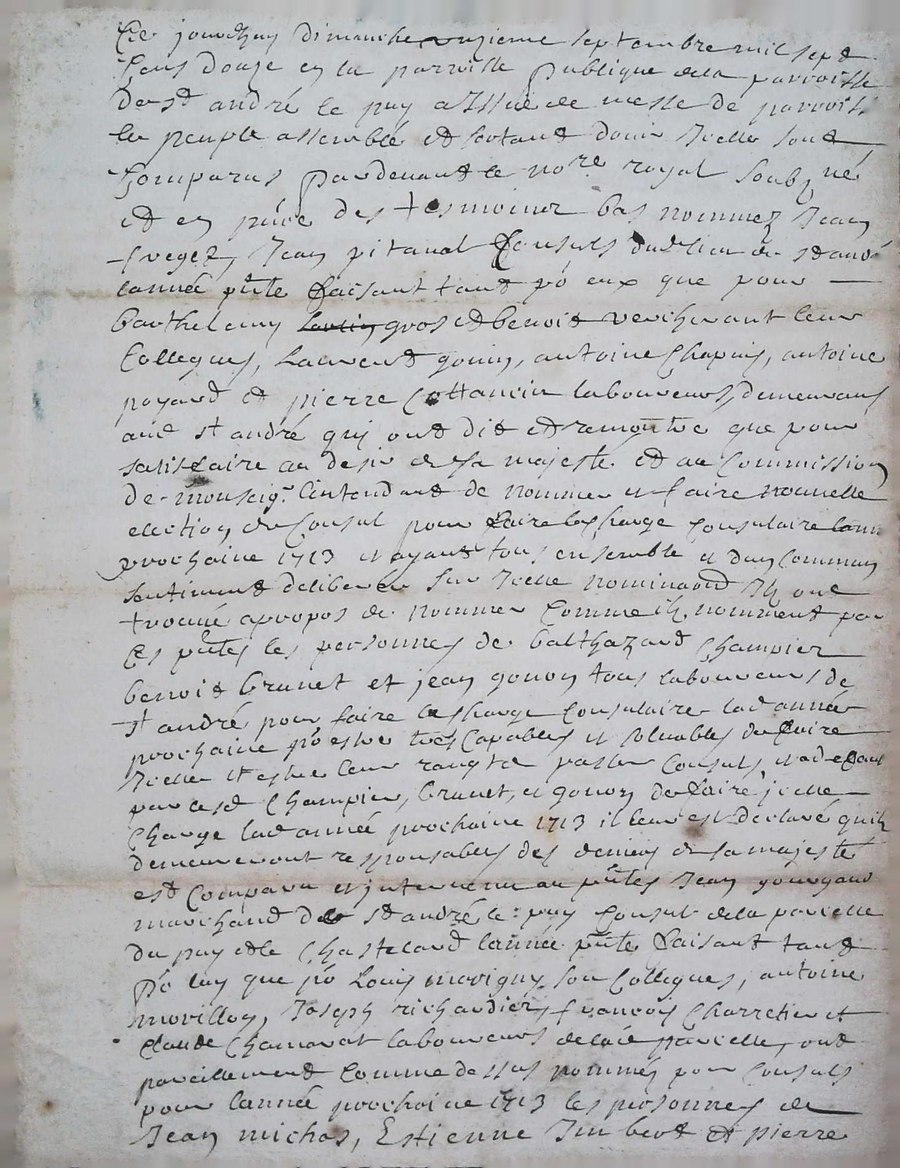 Ce jourdhuy dimanche unzieme septembre mil sept
Cens douze en la parroisse publique de la parroisse
De st andré le puy a Issue de messe de parroisse
le peuple assemblé et sortant douir Icelle sont
Comparus pardevant le nore royal soubzné
et en pnce des tesmoings bas nommez Jean
Jean pitaval Consuls dud lieu de st andré
lannée pnte faisant tant po eux que pour
barthelemy gros et benoit verchirant leur
Collegues, Laurent gonin, antoine Chapuis, antoine
poyard et pierre Cottancin laboureurs demeurans
aud st andré quy ont dit et remontre que pour
satisfaire au desir de sa majeste et au Commission
de monseigr Lintendant de nommer et faire nouvelle
election de Consul pour faire la Charge Consulaire lannee
prochaine 1713 et ayant tous ensemble et dun Commun
sentiment deliberer sur Icelle nominaon Ilz ont
trouvé apropos de nommer Comme ilz nomment par
Ces pntes les personnes de balthazard Champier
benoit brunet et jean gonon tous laboureurs de
st andré pour faire la charge Consulaire lad année
prochaine po estre tres Capables et solvables de faire
Icelle et estre leur rang de passer Consuls et a deffaut
par cesd Champier, brunet, et gonon de faire jcelle
Charge lad année prochaine 1713 il leur est declaré quilz
demeureront responsables des deniers de sa majesté
est Comparu et jntervenu au pntes Jean gourgaud
marchand de st andré le puy Consul de la parcelle
du puy et le Chastelard lannée pnte faisant tant
po luy que po Louis morigny son Collegues, antoine
morillon, Joseph richardier, françois Charretier et
Claude Chamarat laboureurs de lad parcelle, ont
pareillement Comme dessus nommez pour Consuls
pour lannée prochaine 1713 les personnes de
Jean michas, Estienne Imbert et pierre